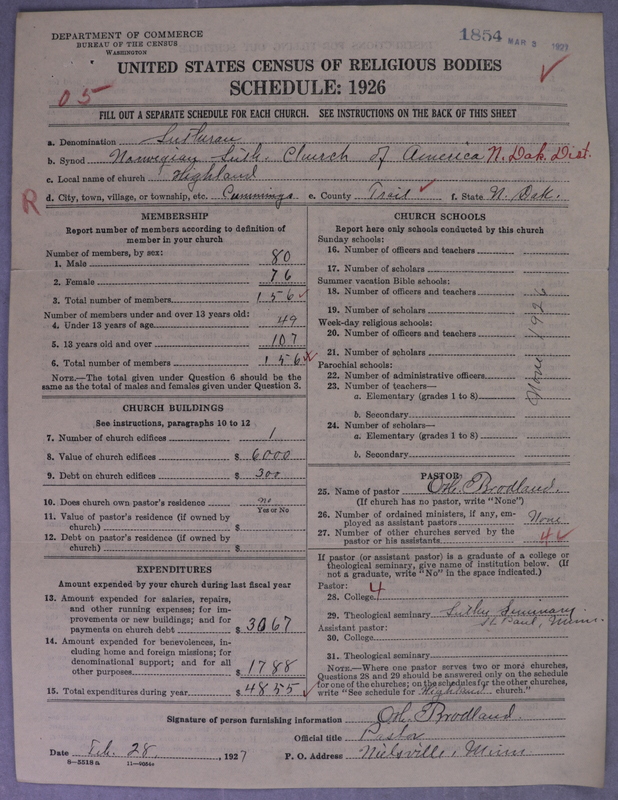 DEPARTMENT OF COMMERCE
BUREAU OF THE CENSUS
WASHINGTON
1854 MAR 3 1927
UNITED STATES CENSUS OF RELIGIOUS BODIES
SCHEDULE: 1926
05
FILL OUT A SEPARATE SCHEDULE FOR EACH CHURCH. SEE INSTRUCTIONS ON THE BACK OF THIS SHEET
a. Denomination Lutheran
b. Synod Norwegian Luth. Church of America N. Dak. Dist.
c. Local name of church Highland
R d. City, town, village, or township, etc. Cummings e. County Trail f. State N. Dak.
MEMBERSHIP
Report number of members according to definition of
member in your church
Number of members, by sex:
1. Male 80
2. Female 76
3. Total number of members 156
Number of members under and over 13 years old:
4. Under 13 years of age 49
5. 13 years old and over 107
6. Total number of members 156
NOTE.—The total given under Question 6 should be the
same as the total of males and females given under Question 3.
CHURCH BUILDINGS
See instructions, paragraphs 10 to 12
7. Number of church edifices 1
8. Value of church edifices $ 6000
9. Debt on church edifices $ 300
10. Does church own pastor's residence no
Yes or No
11. Value of pastor's residence (if owned by
church) $
12. Debt on pastor's residence (if owned by
church) $
EXPENDITURES
Amount expended by your church during last fiscal year
13. Amount expended for salaries, repairs,
and other running expenses; for im-
provements or new buildings; and for
payments on church debt $ 3067
14. Amount expended for benevolences, in-
cluding home and foreign missions; for
denominational support; and for all
other purposes $ 1788
15. Total expenditures during year $ 4855
CHURCH SCHOOLS
Report here only schools conducted by this church
Sunday schools:
16. Number of officers and teachers
17. Number of scholars
Summer vacation Bible schools:
18. Number of officers and teachers
19. Number of scholars
Week-day religious schools:
20. Number of officers and teachers
21. Number of scholars
Parochial schools:
22. Number of administrative officers
23. Number of teachers—
a. Elementary (grades 1 to 8)
b. Secondary
24. Number of scholars—
a. Elementary (grades 1 to 8)
b. Secondary
None 1926
PASTOR
25. Name of pastor Brodland.
(If church has no pastor, write "None")
26. Number of ordained ministers, if any, em-
ployed as assistant pastors None
27. Number of other churches served by the
pastor or his assistants 4
If pastor (or assistant pastor) is a graduate of a college or
theological seminary, give name of institution below. (If
not a graduate, write "No" in the space indicated.)
Pastor:
28. College 4
29. Theological seminary Luther Seminary
St. Paul, Minn.
Assistant pastor:
30. College
31. Theological seminary
NOTE.—Where one pastor serves two or more churches,
Questions 28 and 29 should be answered only on the schedule
for one of the churches; on the schedules for the other churches,
write "See schedule for Highland church."
Signature of person furnishing information Brodland.
Official title Pastor
Date Feb. 28, 1927 P. O. Address Nielsville, Minn
8—5518a 11—9064